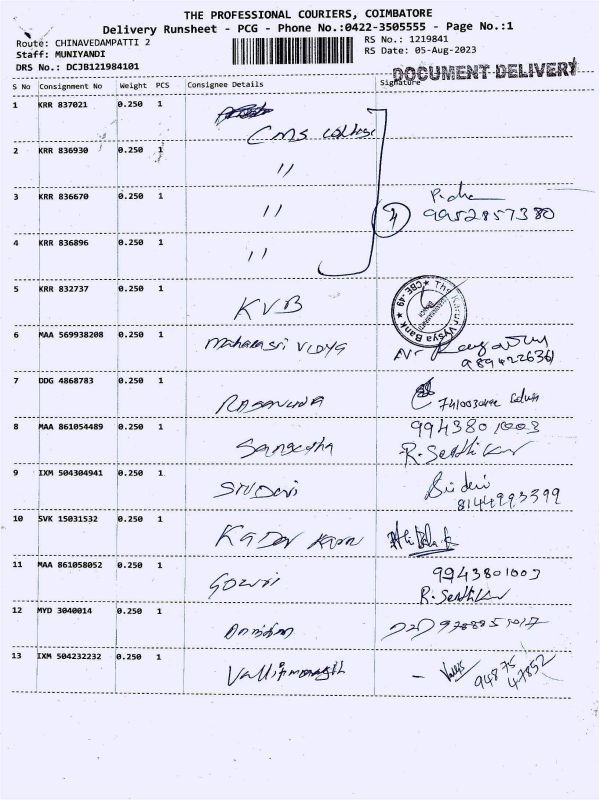 THE PROFESSIONAL COURIERS, COIMBATORE
Delivery Runsheet - PCG - Phone No.:0422-3505555 - Page No.:1
Route: CHINAVEDAMPATTI 2
RS No.: 1219841
Staff: MUNIYANDI
RS Date: 05-Aug-2023
DRS No.: DCJB121984101
DOCUMENT DELIVERY
S No Consignment No Weight PCS Consignee Details Signature
1 KRR 837021 0.250 1 CMS College
2 KRR 836930 0.250 1 "
3 KRR 836670 0.250 1 " 4 9952857380
4 KRR 836896 0.250 1 "
5 KRR 832737 0.250 1 KVB
The Karur Vysya Bank ★ CBE-49 ★
6 MAA 569938208 0.250 1 Maharasri VIDYA
9894226361
7 DDG 4868783 0.250 1
8 MAA 861054489 0.250 1 Sangeetha 9943801003
R. Senthil Kumar
9 IXM 504304941 0.250 1 SriDevi Sridevi
8144993399
10 SVK 15031532 0.250 1
11 MAA 861058052 0.250 1 Gowri 9943801003
R. Senthil Kumar
12 MYD 3040014 0.250 1
13 IXM 504232232 0.250 1 - Vallis 94875
47852